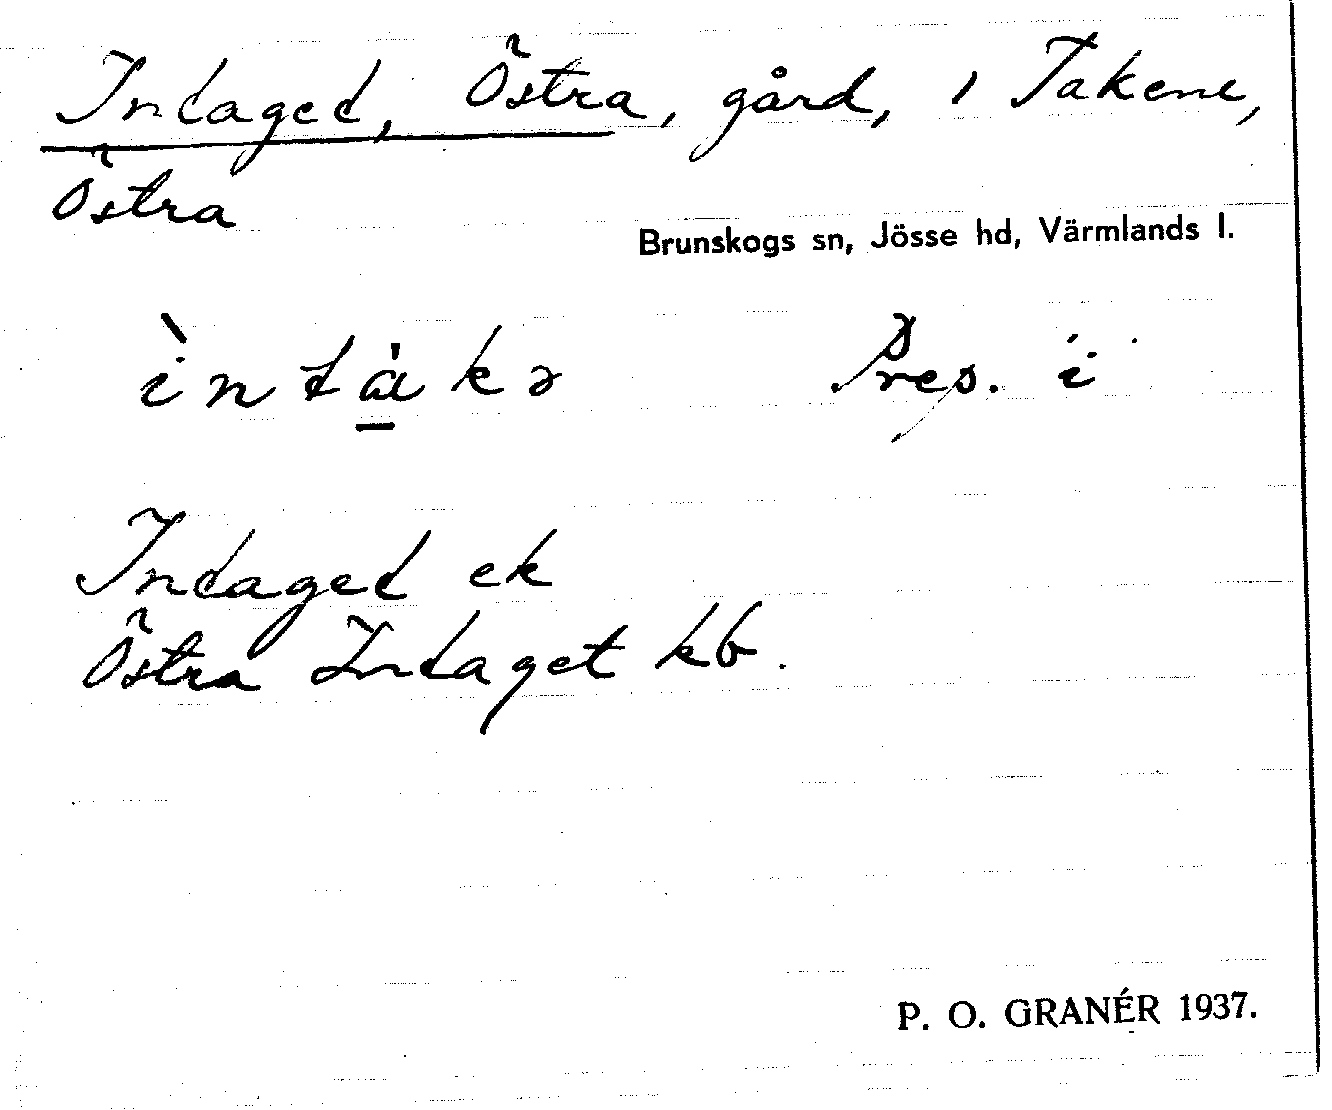 Indaged, Östra, gård, i Takene,
Östra
Brunskogs sn, Jösse hd, Värmlands l.
ìntàkə Prep. i
Indaged ek
Östra Indaget kb.
P. O. GRANÉR 1937.